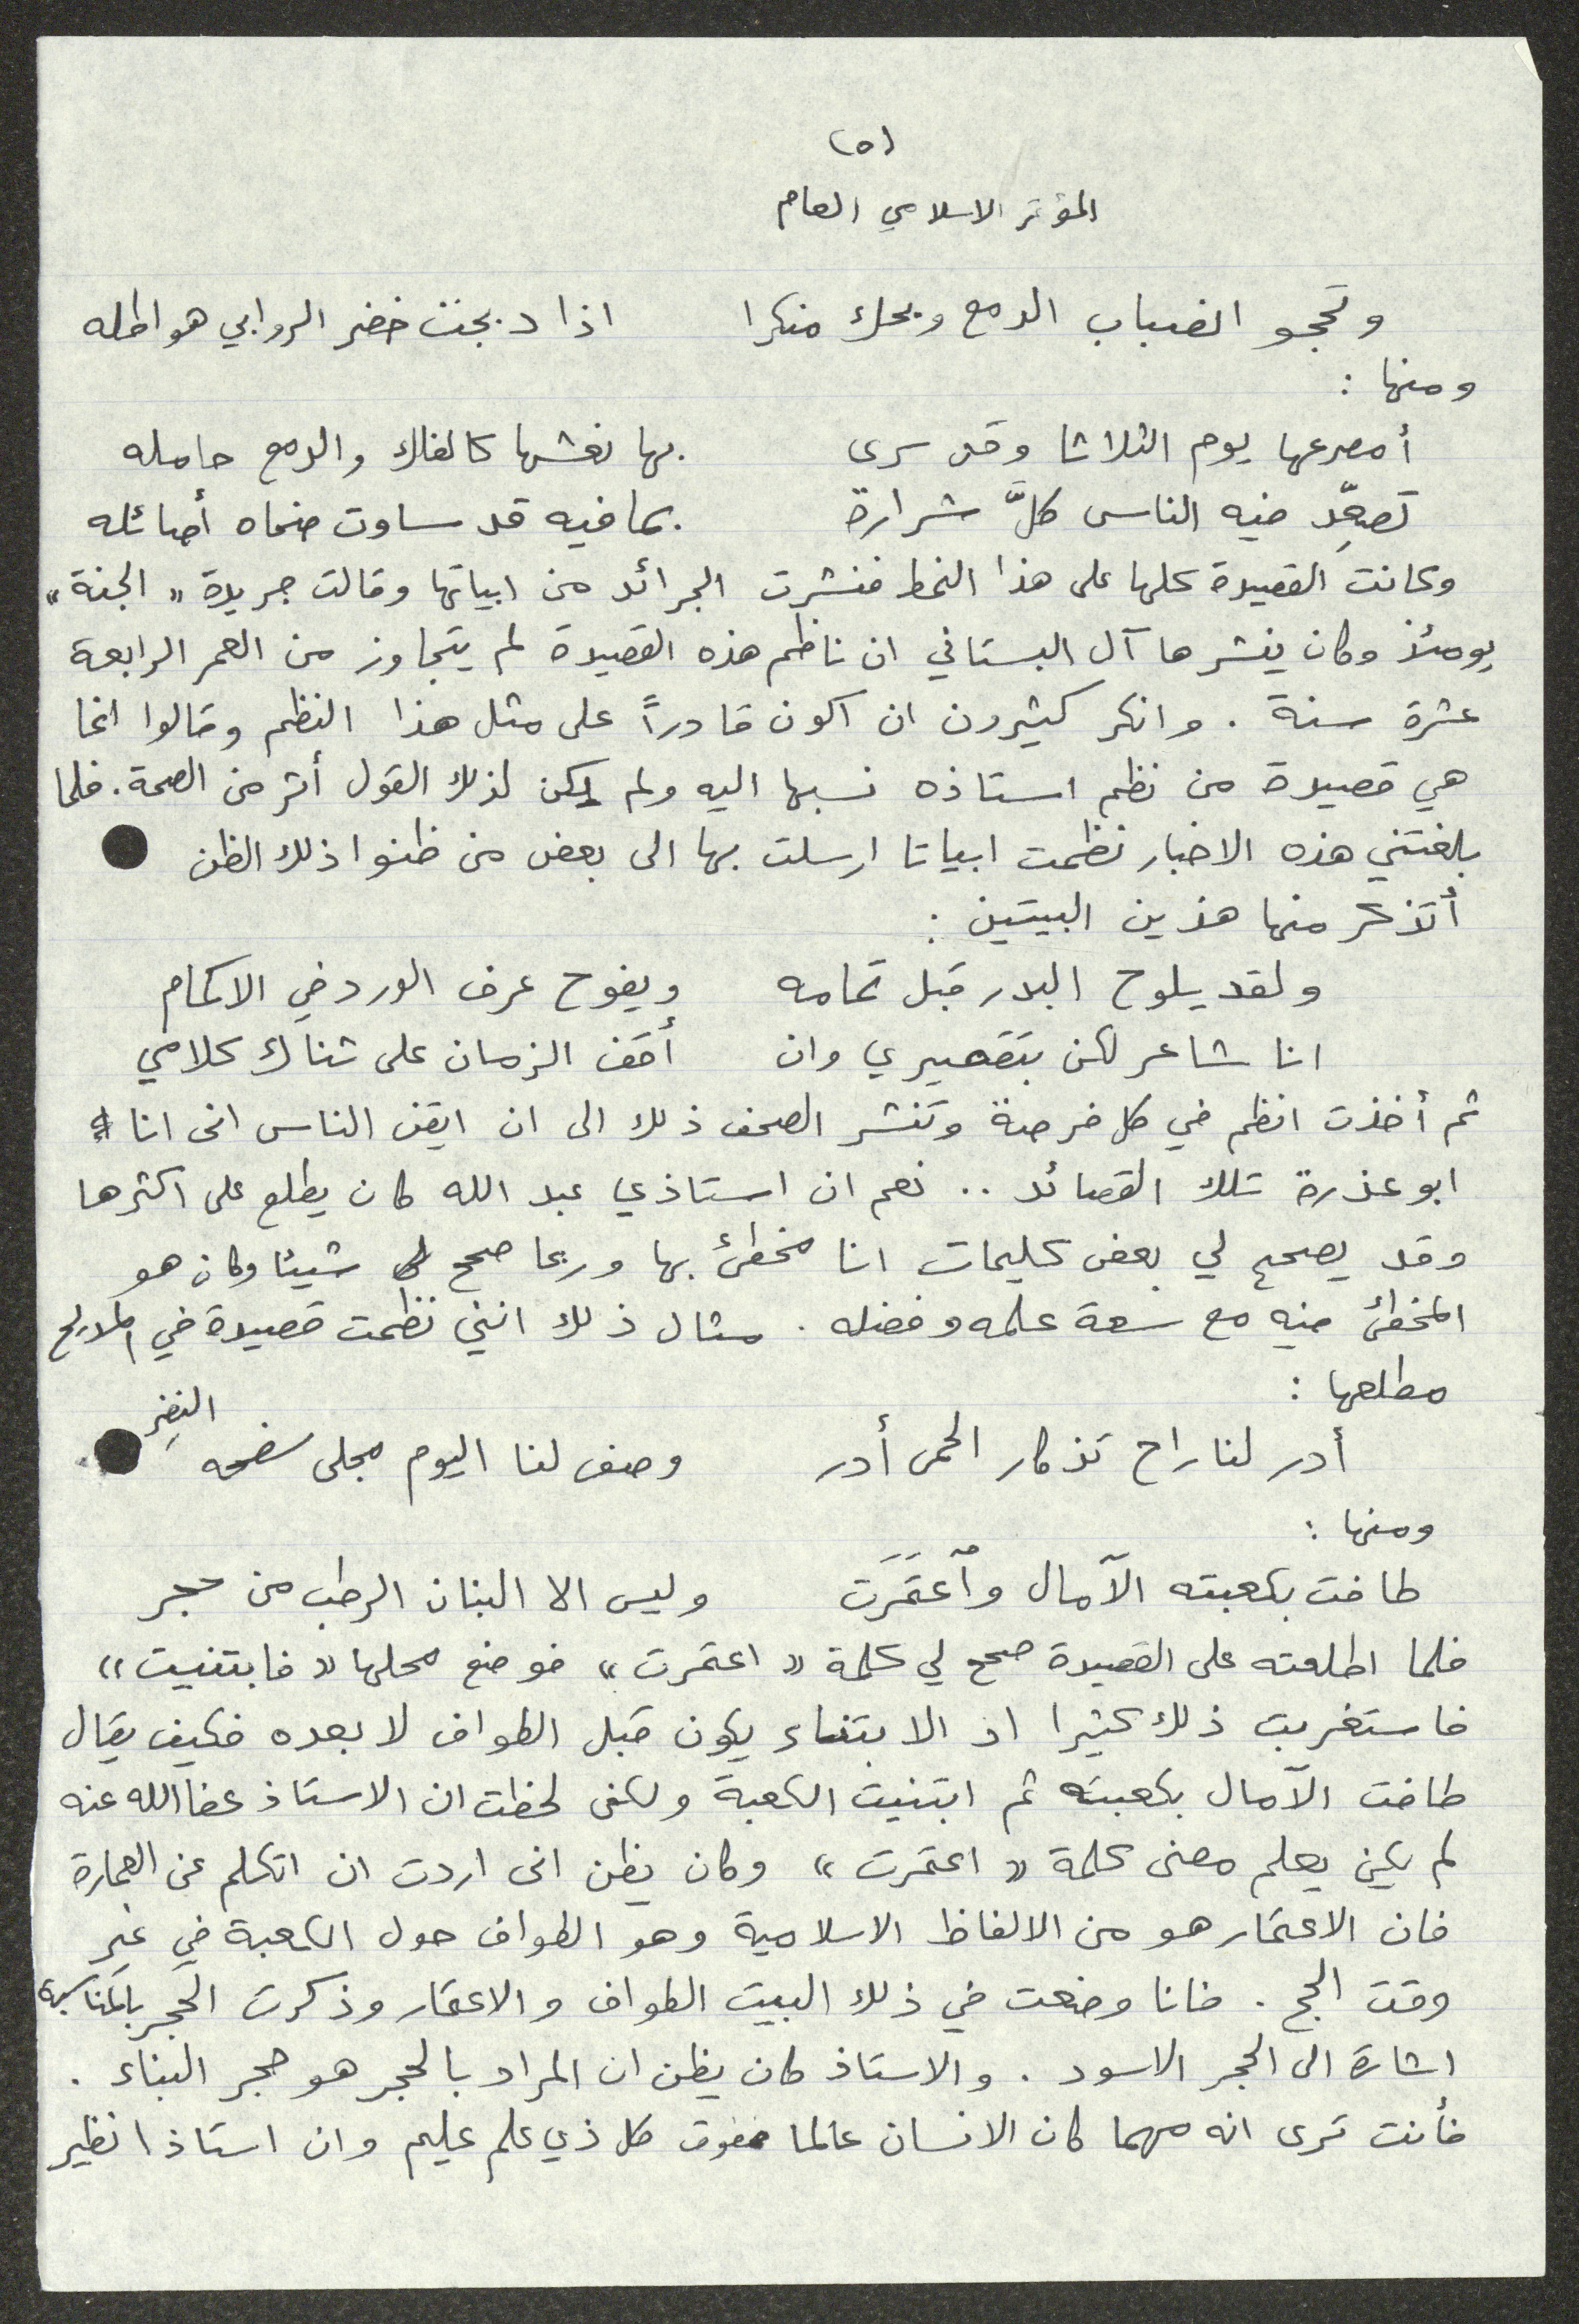 (٥)
المؤتمر الاسلامي العام
وتحجو انصباب الدمع ويحك منكرا    اذا دبجت خضر الروابي هواطله
ومنها :
أمصرعها يوم الثلاثا وقد سرى    بها نعشها كالفلك والدمع حامله
تصعِّد فيه الناس كلَّ شرارة    بما فيه قد ساوت ضحاه أصائله
وكانت القصيدة كلها على هذا النمط فنشرت الجرائد من ابياتها وقالت جريدة « الجنة »
يومئذ وكان ينشرها آل البستاني ان ناظم هذه القصيدة لم يتجاوز من العمر الرابعة
عشرة سنة . وانكر كثيرون ان اكون قادراً على مثل هذا النظم وقالوا انما
هي قصيدة من نظم استاذه نسبها اليه ولم يكن لذلك القول أثر من الصحة . فلما
بلغتني هذه الاخبار نظمت ابياتا ارسلت بها الى بعض من ظنوا ذلك الظن
أتذكر منها هذين البيتين :
ولقد يلوح البدر قبل تمامه    ويفوح عرف الورد في الاكمام
انا شاعر لكن بتقصيري وان    أقف الزمان على ثناك كلامي
ثم أخذت انظم في كل فرصة وتنشر الصحف ذلك الى ان ايقن الناس انى انا
ابو عذرة تلك القصائد .. نعم ان استاذي عبد الله كان يطلع على اكثرها
وقد يصحح لي بعض كليمات انا مخطئ بها وربما صحح لي شيئا وكان هو
المخطئ فيه مع سعة علمه وفضله . مثال ذلك انني نظمت قصيدة في المديح
مطلعها :
أدر لنا راح تذكار الحمى أدر    وصف لنا اليوم مجلى سفحه النضِر
ومنها :
طافت بكعبته الآمال وٱعتَمَرَت    وليس الا البنان الرطب من حجر
فلما اطلعته على القصيدة صحح لي كلمة « اعتمرت » فوضع محلها « فابتنيت »
فاستغربت ذلك كثيرا اذ الابتناء يكون قبل الطواف لا بعده فكيف يقال
طافت الآمال بكعبته ثم ابتنيت الكعبة ولكنى لحظت ان الاستاذ عفا الله عنه
لم يكن يعلم معنى كلمة « اعتمرت » وكان يظن انى اردت ان اتكلم عن العمارة
فان الاعتمار هو من الالفاظ الاسلامية وهو الطواف حول الكعبة في غير
وقت الحج . فانا وضعت في ذلك البيت الطواف والاعتمار وذكرت الحجر بالمناسبة
اشارة الى الحجر الاسود . والاستاذ كان يظن ان المراد بالحجر هو حجر البناء .
فأنت ترى انه مهما كان الانسان عالما ففوق كل ذي علم عليم وان استاذا نظير